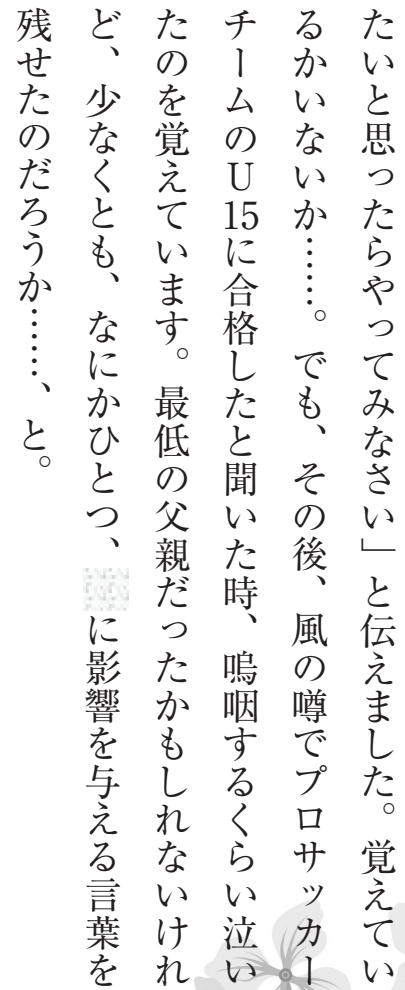 たいと思ったらやってみなさい」と伝えました。覚えてい
るかいないか……。でも、その後、風の噂でプロサッカー
チームのU15に合格したと聞いた時、嗚咽するくらい泣い
たのを覚えています。最低の父親だったかもしれないけれ
ど、少なくとも、なにかひとつ、に影響を与える言葉を
残せたのだろうか……、と。